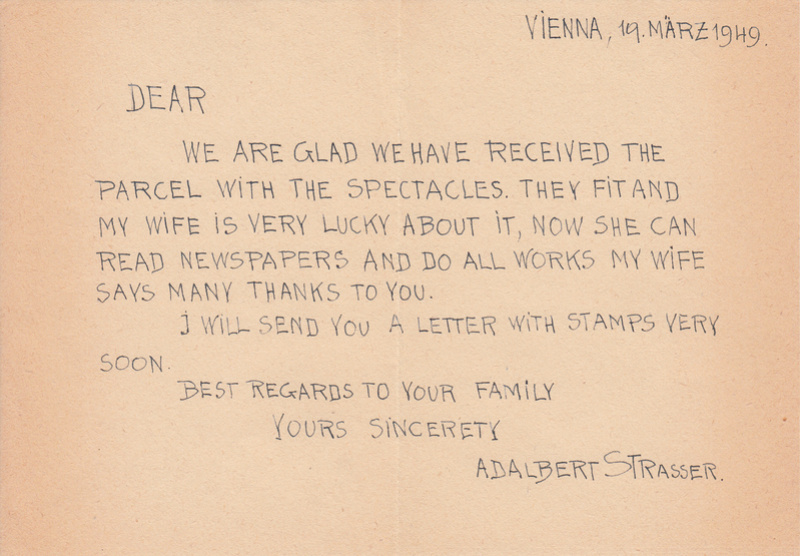 VIENNA, 19. MÄRZ 1949.
DEAR
WE ARE GLAD WE HAVE RECEIVED THE
PARCEL WITH THE SPECTACLES. THEY FIT AND
MY WIFE IS VERY LUCKY ABOUT IT, NOW SHE CAN
READ NEWSPAPERS AND DO ALL WORKS MY WIFE
SAYS MANY THANKS TO YOU.
I WILL SEND YOU A LETTER WITH STAMPS VERY
SOON.
BEST REGARDS TO YOUR FAMILY
YOURS SINCERETY
ADALBERT STRASSER.